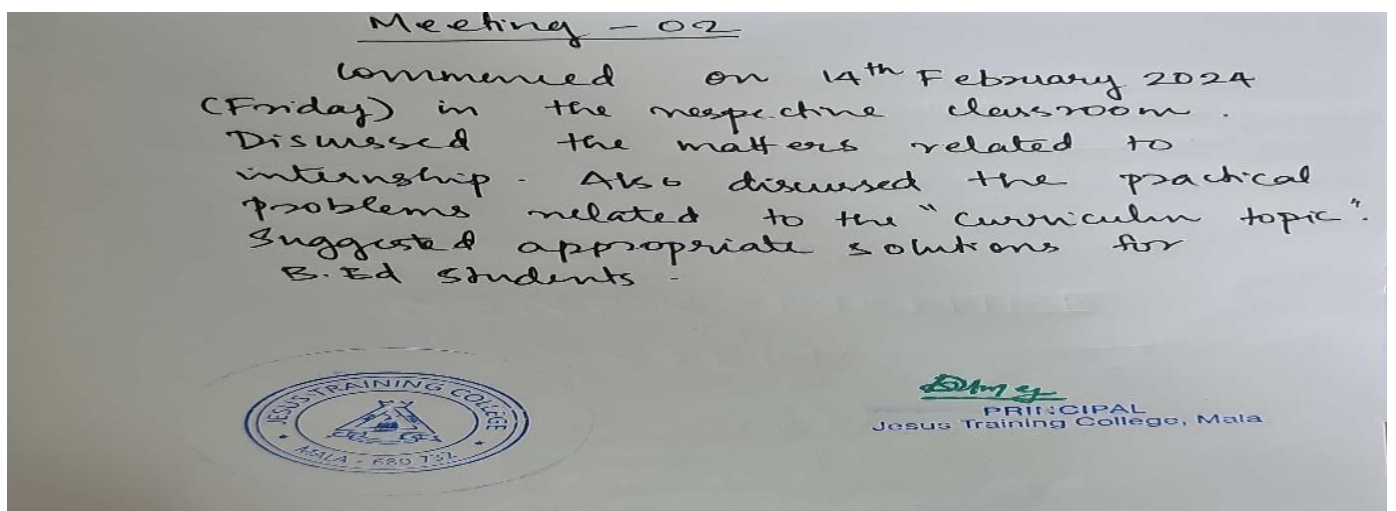 Meeting - 02
Commenced on 14th February 2024
(Friday) in the respective classroom.
Discussed the matters related to
internship. Also discussed the practical
problems related to the "curriculm topic".
Suggested appropriate solutions for
B.Ed students.
JESUS TRAINING COLLEGE
MALA - 680 732
PRINCIPAL
Jesus Training College, Mala